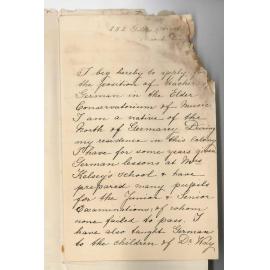 I beg hereby to apply
the position of teacher
German in the Elder
Conservatorium of Music
I am a native of the
North of Germany. During
my residence in this Colony
I have for some years given
German lessons at Mrs
Kelsey's School & have
prepared many pupils
for the Junior & Senior
Examinations, of whom
none failed to pass. I
have also taught German
to the children of Dr Way